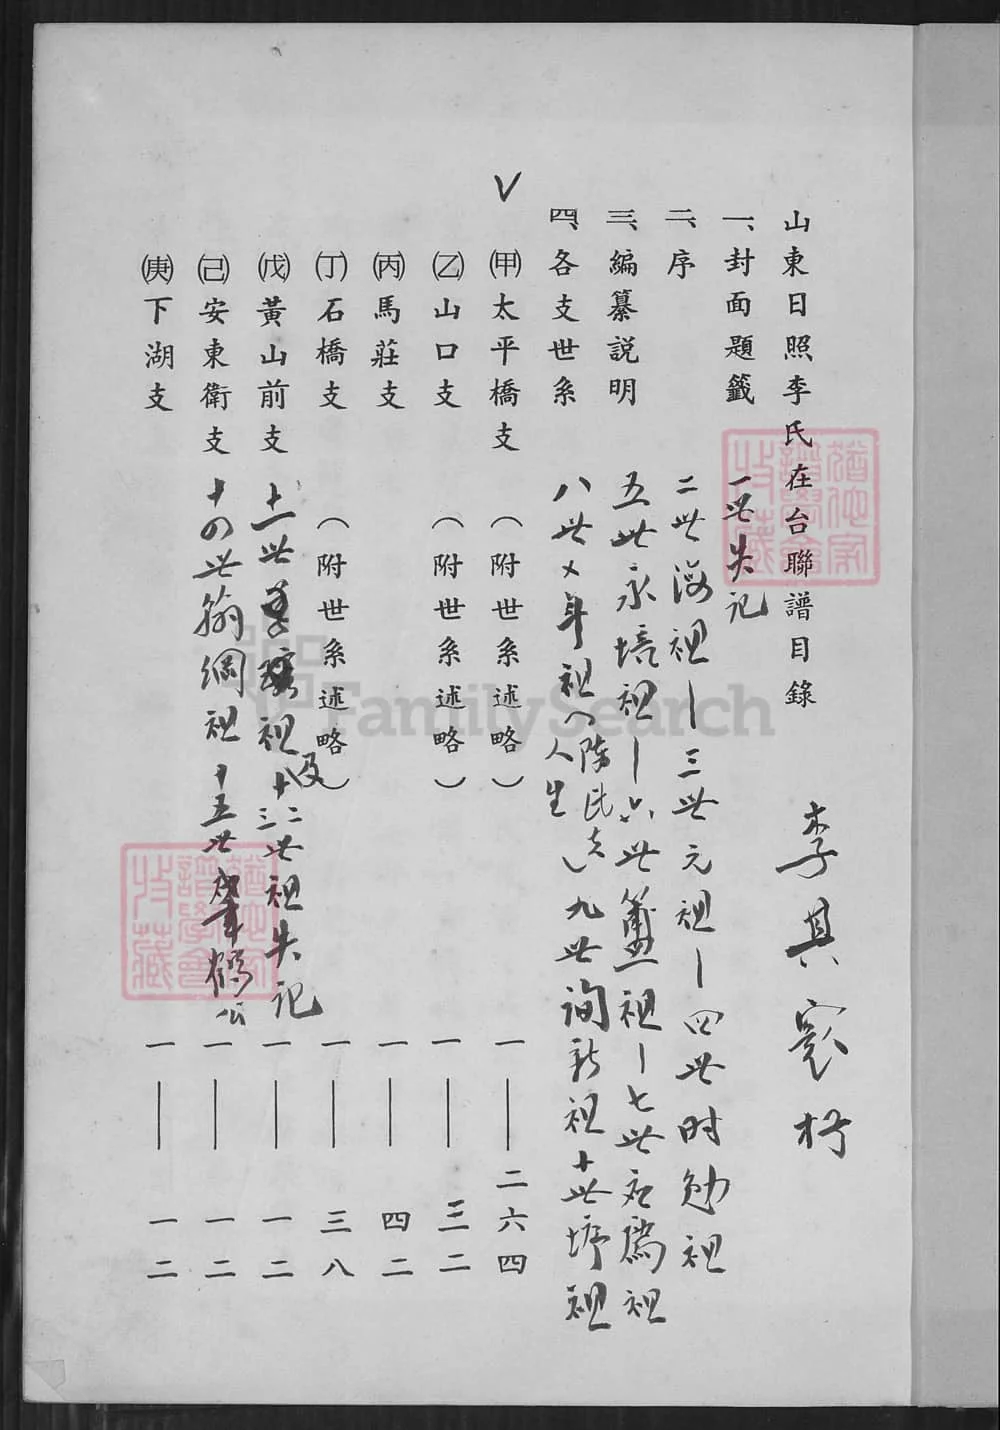 山東日照李氏在台聯譜目錄
李具
一、封面題籤
一世失記
二、序
二世海祖—三世元祖—四世時勉祖
三、編纂說明
五世永培祖—六世簠祖—七世名為祖
四、各支世系
八世 年祖(陳氏 人生)九世詢新祖十世祖
V
㈠甲 太平橋支(附世系述略)一——二六四
(乙)山口支(附世系述略)一——三二
(丙)馬莊支 一——四二
(丁)石橋支(附世系述略)一——三八
(戊)黃山前支 一——一二
十一世 祖及十二三世祖失記
(己)安東衛支 一——一二
十四世翰綱祖十五世肇鶴公
(庚)下湖支 一——一二
FamilySearch